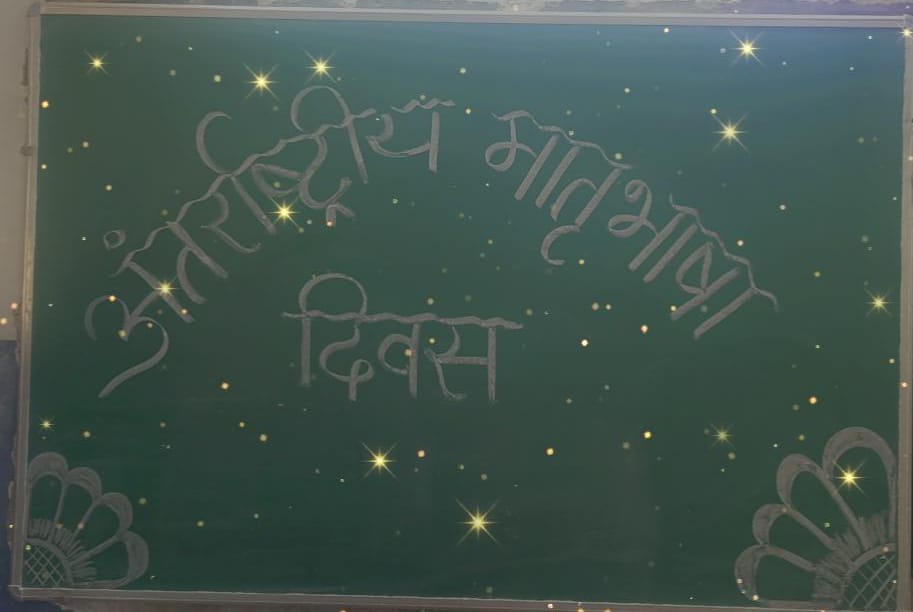 अंतर्राष्ट्रीय मातृभाषा
दिवस